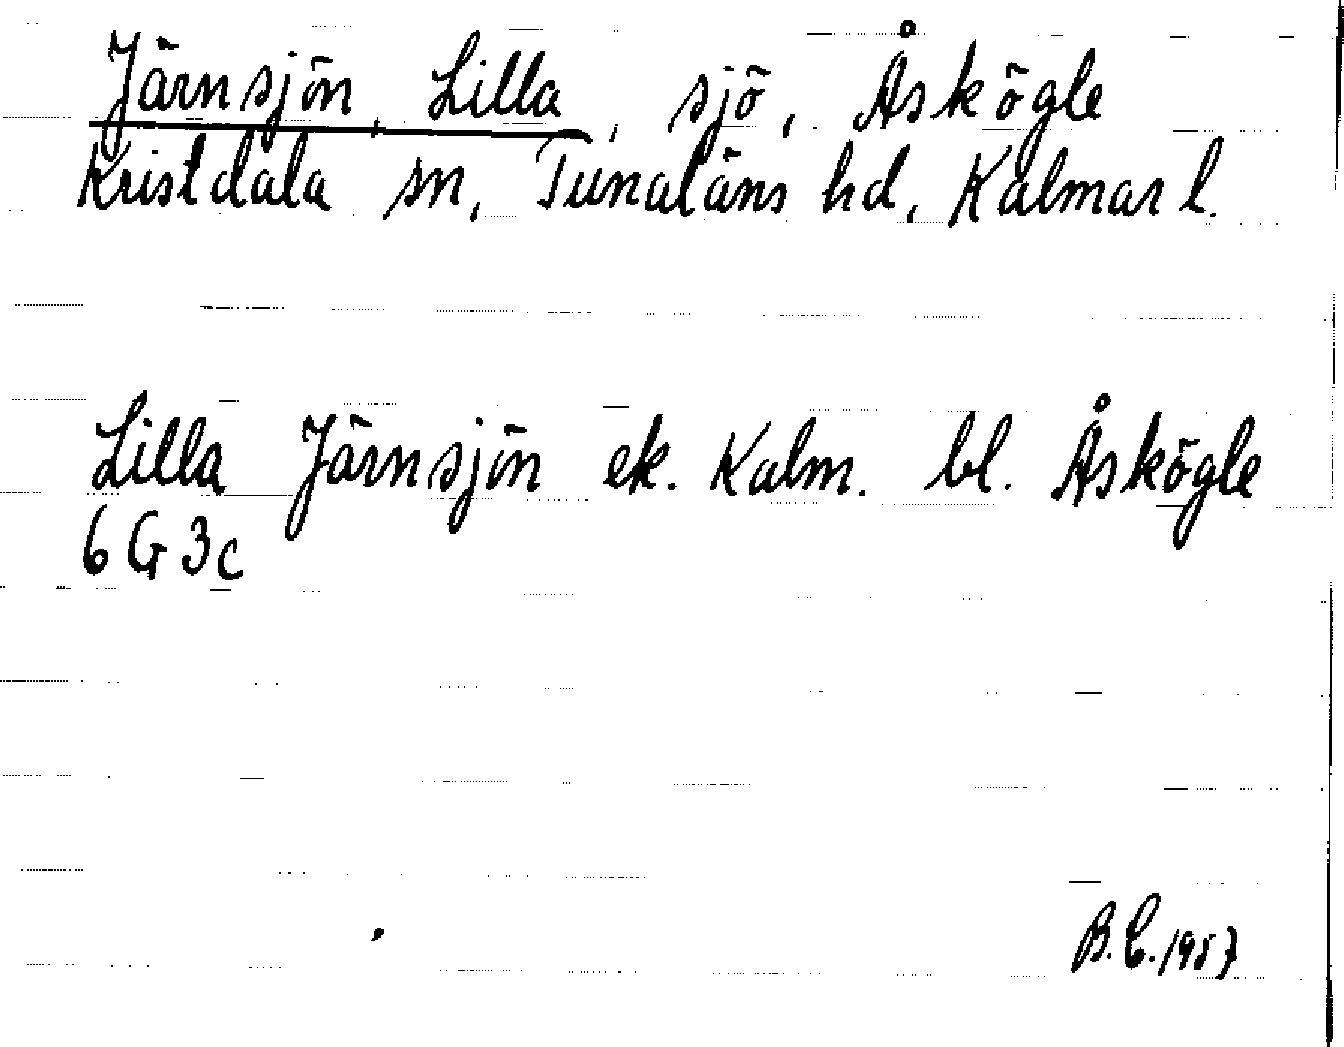 Järnsjön, Lilla, sjö, Åskögle
Kristdala sn, Tunaläns hd, Kalmar l.
Lilla Järnsjön ek. Kalm. bl. Åskögle
6 G 3c
B.E. 1957